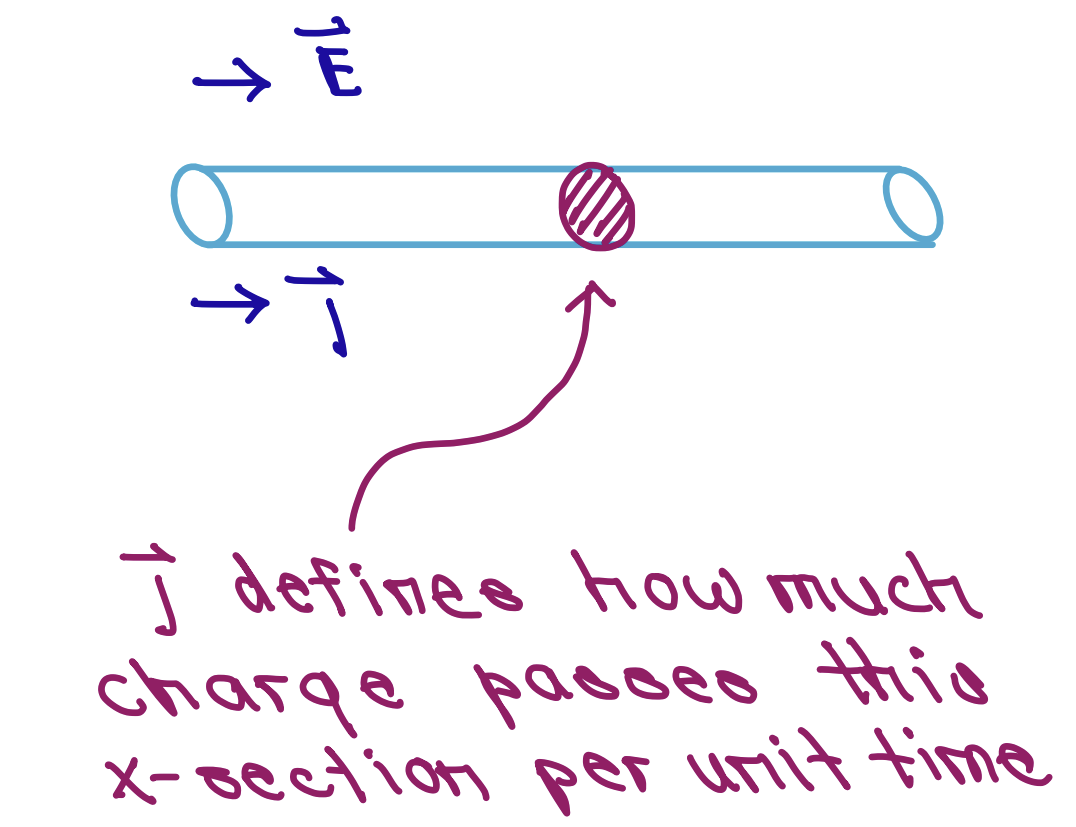 → E⃗
→ j⃗
j⃗ defines how much
charge passes this
x-section per unit time